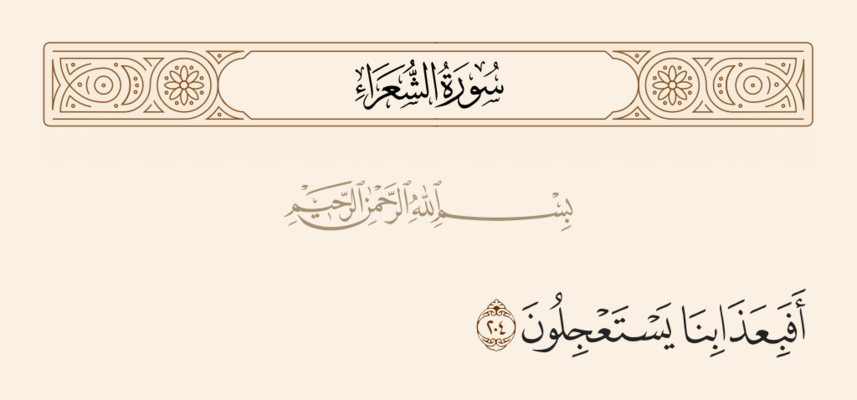 سُورَةُ الشُّعَرَاءِ
بِسْمِ اللَّهِ الرَّحْمَٰنِ الرَّحِيمِ
أَفَبِعَذَابِنَا يَسْتَعْجِلُونَ ٢٠٤